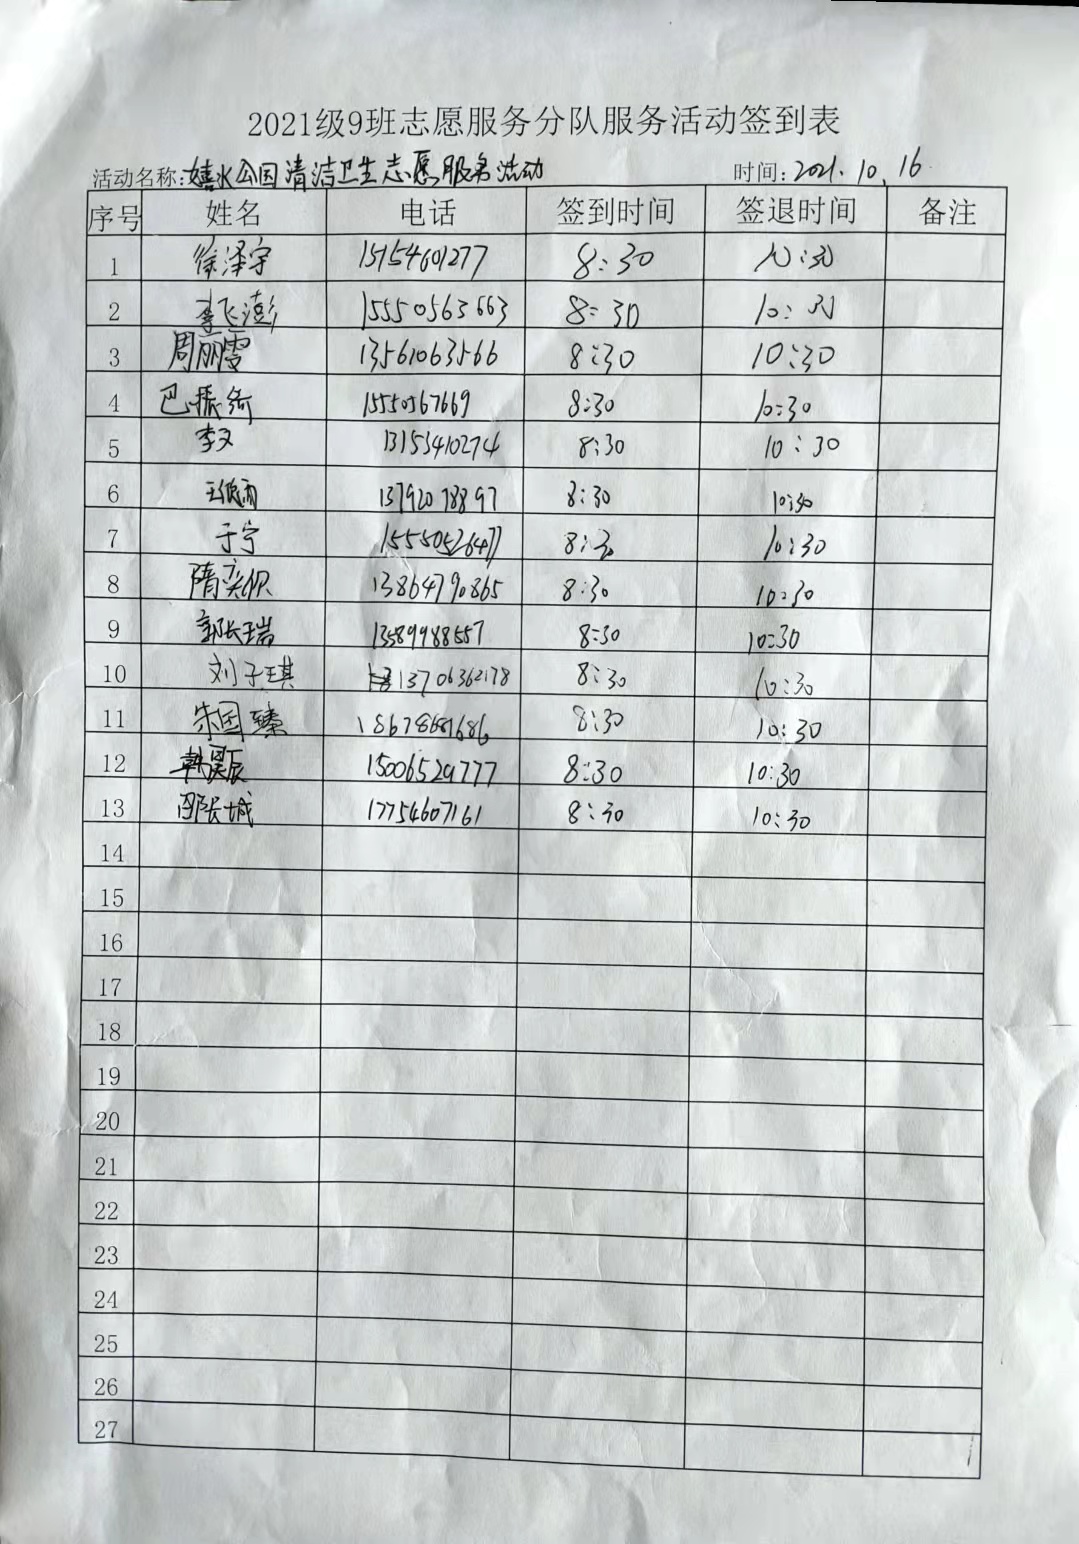 2021级9班志愿服务分队服务活动签到表
活动名称:嬉水公园清洁卫生志愿服务活动 时间:2021.10.16
序号 姓名 电话 签到时间 签退时间 备注
1 徐泽宇 15154601277 8:30 10:30
2 李飞澎 15550563663 8:30 10:30
3 周丽雯 13561063566 8:30 10:30
4 巴振 8:30 10:30
5 李又 13153410274 8:30 10:30
6 13792078897 8:30 10:30
7 于宁 15550526477 8:30 10:30
8 隋奕帆 13864790865 8:30 10:30
9 郭长瑞 13589988557 8:30 10:30
10 刘子琪 13706362178 8:30 10:30
11 朱国臻 8:30 10:30
12 韩昊辰 15006529777 8:30 10:30
13 长城 17754607161 8:30 10:30
14
15
16
17
18
19
20
21
22
23
24
25
26
27